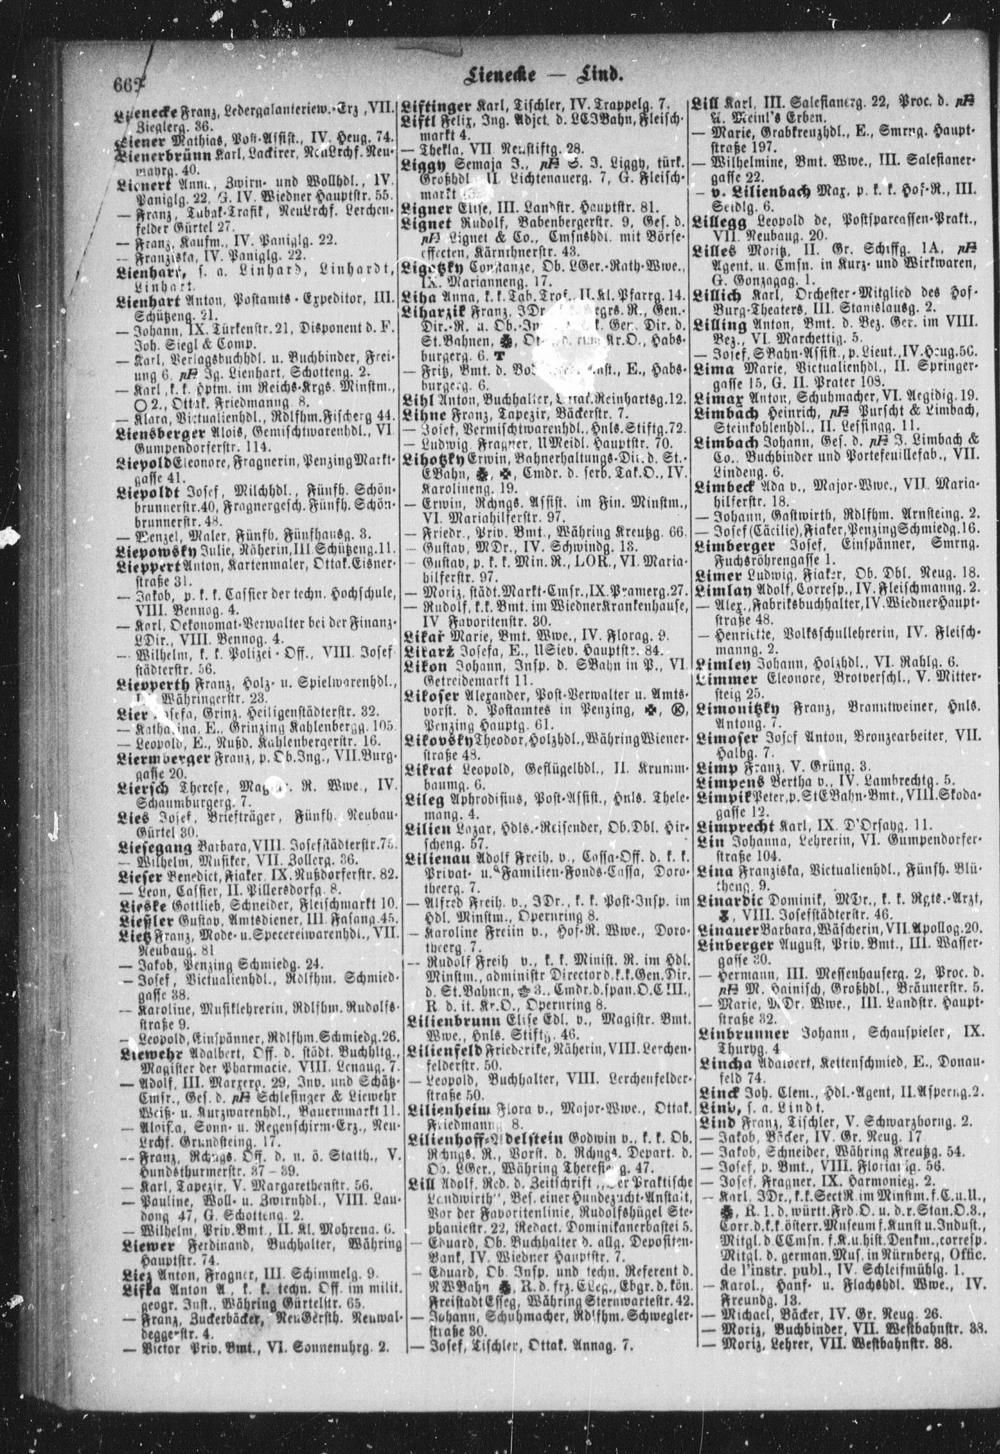 Lienecke — Lind.
Lienecke Franz, Ledergalanteriew.-Erz, VII.
Zieglerg. 36.
Liener Mathias, Post-Assist., IV. Heug. 74.
Lienerbrünn Karl, Lackirer, NeuLrchf. Neu-
mayrg. 40.
Lienert Anna, Zwirn- und Wollhdl., IV.
Paniglg. 22, G. IV. Wiedner Hauptstr. 55.
— Franz, Tabak-Trafik, NeuLrchf. Lerchen-
felder Gürtel 27.
— Franz, Kaufm., IV. Paniglg. 22.
— Franziska, IV. Paniglg. 22.
Lienhart, s. a. Linhard, Linhardt,
Linhart.
Lienhart Anton, Postamts-Expeditor, III.
Schützeng. 21.
— Johann, IX. Türkenstr. 21, Disponent d. F.
Joh. Siegl & Comp.
— Karl, Verlagsbuchhdl. u. Buchbinder, Frei-
ung 6, Jg. Lienhart, Schotteng. 2.
— Karl, k. k. Hptm. im Reichs-Krgs. Minstm.,
2., Ottak. Friedmanng. 8.
— Klara, Victualienhdl., Rdlfhm. Fischerg 44.
Liensberger Alois, Gemischtwarenhdl., VI.
Gumpendorferstr. 114.
Liepold Eleonore, Fragnerin, Penzing Markt-
gasse 41.
Liepoldt Josef, Milchhdl., Fünfh. Schön-
brunnerstr. 40, Fragnergesch. Fünfh. Schön-
brunnerstr. 48.
— Wenzel, Maler, Fünfh. Fünfhausg. 3.
Liepowsky Julie, Näherin, III Schützeng. 11.
Lieppert Anton, Kartenmaler, Ottak. Eisner-
straße 31.
— Jakob, p. k. k. Cassier der techn. Hochschule,
VIII. Bennog. 4.
— Karl, Oekonomat-Verwalter bei der Finanz-
LDir., VIII. Bennog. 4.
— Wilhelm, k. k. Polizei-Off., VIII. Josef-
städterstr. 56.
Liepperth Franz, Holz- u. Spielwarenhdl.,
Währingerstr. 23.
Lier Josefa, Grinz. Heiligenstädterstr. 32.
— Katharina, E., Grinzing Kahlenbergg. 105.
— Leopold, E., Nußd. Kahlenbergerstr. 16.
Liermberger Franz, p. Ob. Ing., VII. Burg-
gasse 20.
Liersch Therese, R. Wwe., IV.
Schaumburgerg. 7.
Lies Josef, Briefträger, Fünfh. Neubau-
Gürtel 30.
Liesegang Barbara, VIII. Josefstädterstr. 75.
— Wilhelm, Musiker, VII. Zollerg. 36.
Lieser Benedict, Fiaker, IX. Nußdorferstr. 82.
— Leon, Cassier, II. Pillersdorfg. 8.
Lieske Gottlieb, Schneider, Fleischmarkt 10.
Liessler Gustav, Amtsdiener, III. Fasang. 45.
Lietz Franz, Mode- u. Specereiwarenhdl., VII.
Neubaug. 81
— Jakob, Penzing Schmiedg. 24.
— Josef, Victualienhdl., Rdlfhm. Schmied-
gasse 38.
— Karoline, Musiklehrerin, Rdlfhm. Rudolfs-
straße 9.
— Leopold, Einspänner, Rdlfhm. Schmiedg. 26.
Liewehr Adalbert, Off. d. städt. Buchhltg.,
Magister der Pharmacie, VIII. Lenaug. 7.
— Adolf, III. Marxerg. 29, Inv. und Schätz-
Cmsr., Ges. d. Schlesinger & Liewehr
Weiß- u. Kurzwarenhdl., Bauernmarkt 11.
— Aloisia, Sonn- u. Regenschirm-Erz., Neu-
Lrchf. Grundsteing. 17.
— Franz, Rchngs. Off. d. n. ö. Statth., V.
Hundsthurmerstr. 37—39.
— Karl, Tapezir, V. Margarethenstr. 56.
— Pauline, Woll- u. Zwirnhdl., VIII. Lau-
dong 47, G. Schotteng. 2.
— Wilhelm, Priv. Bmt., II. Kl. Mohreng. 6.
Liewer Ferdinand, Buchhalter, Währing
Hauptstr. 74.
Liez Anton, Fragner, III. Schimmelg. 9.
Lifka Anton A., k. k. techn. Off. im milit.
geogr. Inst., Währing Gürtelstr. 65.
— Franz, Zuckerbäcker, NeuGersth. Neuwal-
deggerstr. 4.
— Victor Priv. Bmt., VI. Sonnenuhrg. 2.
Liftinger Karl, Tischler, IV. Trappelg. 7.
Liftl Felix, Ing. Adjct. d. LCJBahn, Fleisch-
markt 4.
— Thekla, VII. Neustiftg. 28.
Liggy Semaja J., S. J. Liggy, türk.
Großhdl. II. Lichtenauerg. 7, G. Fleisch-
markt
Ligner Elise, III. Landstr. Hauptstr. 81.
Lignet Rudolf, Babenbergerstr. 9, Ges. d.
Lignet & Co., Cmsnshdl. mit Börse-
effecten, Kärnthnerstr. 43.
Ligotzky Constanze, Ob. LGer.-Rath-Wwe.,
IX. Marianneng. 17.
Liha Anna, k. k. Tab. Traf., II. Kl. Pfarrg. 14.
Liharzik Franz, JDr., Gen.-
Dir.-R. u. Ob.-In Gen. Dir. d.
St. Bahnen, Kr. O., Habs-
burgerg. 6.
— Fritz, Bmt. d. E., Habs-
burgerg. 6.
Lihl Anton, Buchhalter, Ottak. Reinhartsg. 12.
Lihne Franz, Tapezir, Bäckerstr. 7.
— Josef, Vermischtwarenhdl., Hnls. Stiftg. 72.
— Ludwig, Fragner, UMeidl. Hauptstr. 70.
Lihotzky Erwin, Bahnerhaltungs-Dir. d. St.-
EBahn, Cmdr. d. serb. Tak. O., IV.
Karolineng. 19.
— Erwin, Rchngs. Assist. im Fin. Minstm.,
VI. Mariahilferstr. 97.
— Friedr., Priv. Bmt., Währing Kreutzg. 66.
— Gustav, MDr., IV. Schwindg. 13.
— Gustav, p. k. k. Min. R., LOR., VI. Maria-
hilferstr. 97.
— Moriz, städt. Markt-Cmsr., IX. Pramerg. 27.
— Rudolf, k. k. Bmt. im Wiedner Krankenhause,
IV Favoritenstr. 30.
Likař Marie, Bmt. Wwe., IV. Florag. 9.
Likarž Josefa, E., USiev. Hauptstr. 84.
Likon Johann, Insp. d. SBahn in P., VI.
Getreidemarkt 11.
Likoser Alexander, Post-Verwalter u. Amts-
vorst. d. Postamtes in Penzing,
Penzing Hauptg. 61.
Likovsky Theodor, Holzhdl., Währing Wiener-
straße 48.
Likrat Leopold, Geflügelhdl., II. Krumm-
baumg. 6.
Lileg Aphrodisius, Post-Assist., Hnls. Thele-
mang. 4.
Lilien Lazar, Hdls.-Reisender, Ob. Dbl. Hir-
scheng. 57.
Lilienau Adolf Freih. v., Cassa-Off. d. k. k.
Privat- u. Familien-Fonds-Cassa, Doro-
theerg. 7.
— Alfred Freih. v., JDr., k. k. Post-Insp. im
Hdl. Minstm., Opernring 8.
— Karoline Freiin v., Hof-R. Wwe., Doro-
theerg. 7.
— Rudolf Freih v., k. k. Minist. R. im Hdl.
Minstm., administr Director d. k. k. Gen. Dir.
d. St. Bahnen, 3., Cmdr. d. span. O. C III.,
R. d. it. Kr. O., Opernring 8.
Lilienbrunn Elise Edl. v., Magistr. Bmt.
Wwe., Hnls. Stiftg. 46.
Lilienfeld Friederike, Näherin, VIII. Lerchen-
felderstr. 50.
— Leopold, Buchhalter, VIII. Lerchenfelder-
straße 50.
Lilienheim Flora v., Major-Wwe., Ottak.
Friedmanng 8.
Lilienhoff-Adelstein Godwin v., k. k. Ob.
Rchngs. R., Vorst. d. Rchngs. Depart. d.
Ob. LGer., Währing Theresieng. 47.
Lill Adolf, Red. d. Zeitschrift „Der Praktische
Landwirth", Bes. einer Hundezucht-Anstalt,
Vor der Favoritenlinie, Rudolfshügel Ste-
phaniestr. 22, Redact. Dominikanerbastei 5.
— Eduard, Ob. Buchhalter d. allg. Depositen-
Bank, IV. Wiedner Hauptstr. 7.
— Eduard, Ob. Insp. und techn. Referent d.
NWBahn R. d. frz. ELeg., Ebgr. d. kön.
Freistadt Esseg, Währing Sternwartestr. 42.
— Johann, Schuhmacher, Rdlfhm. Schwegler-
straße 30.
— Josef, Tischler, Ottak. Annag. 7.
Lill Karl, III. Salesianerg. 22, Proc. d.
J. Meinl's Erben.
— Marie, Grabkreuzhdl., E., Smrng. Haupt-
straße 197.
— Wilhelmine, Bmt. Wwe., III. Salesianer-
gasse 22.
— v. Lilienbach Max, p. k. k. Hof-R., III.
Seidlg. 6.
Lillegg Leopold de, Postsparcassen-Prakt.,
VII. Neubaug. 20.
Lilles Moritz, II. Gr. Schiffg. 1A,
Agent. u. Cmsn. in Kurz- und Wirkwaren,
G. Gonzagag. 1.
Lillich Karl, Orchester-Mitglied des Hof-
Burg-Theaters, III. Stanislausg. 2.
Lilling Anton, Bmt. d. Bez. Ger. im VIII.
Bez., VI. Marchettig. 5.
— Josef, SBahn-Assist., p. Lieut., IV. Heug. 56.
Lima Marie, Victualienhdl., II. Springer-
gasse 15, G. II. Prater 108.
Limax Anton, Schuhmacher, VI. Aegidig. 19.
Limbach Heinrich, Purscht & Limbach,
Steinkohlenhdl., II. Lessingg. 11.
Limbach Johann, Ges. d. J. Limbach &
Co., Buchbinder und Portefeuillefab., VII.
Lindeng. 6.
Limbeck Ada v., Major-Wwe., VII. Maria-
hilferstr. 18.
— Johann, Gastwirth, Rdlfhm. Arnsteing. 2.
— Josef (Cäcilie), Fiaker, Penzing Schmiedg. 16.
Limberger Josef, Einspänner, Smrng.
Fuchsröhrengasse 1.
Limer Ludwig, Fiaker, Ob. Dbl. Neug. 18.
Limlay Adolf, Corresp., IV. Fleischmanng. 2.
— Alex., Fabriksbuchhalter, IV. Wiedner Haupt-
straße 48.
— Henriette, Volksschullehrerin, IV. Fleisch-
manng. 2.
Limley Johann, Holzhdl., VI. Rahlg. 6.
Limmer Eleonore, Brotverschl., V. Mitter-
steig 25.
Limonitzky Franz, Branntweiner, Hnls.
Antong. 7.
Limoser Josef Anton, Bronzearbeiter, VII.
Halbg. 7.
Limp Franz, V. Grüng. 3.
Limpens Bertha v., IV. Lambrechtg. 5.
Limpik Peter, p. StEBahn-Bmt., VIII. Skoda-
gasse 12.
Limprecht Karl, IX. D'Orsayg. 11.
Lin Johanna, Lehrerin, VI. Gumpendorfer-
straße 104.
Lina Franziska, Victualienhdl., Fünfh. Blü-
theng. 9.
Linardic Dominik, MDr., k. k. Rgts.-Arzt,
VIII. Josefstädterstr. 46.
Linauer Barbara, Wäscherin, VII. Apollog. 20.
Linberger August, Priv. Bmt., III. Wasser-
gasse 30.
— Hermann, III. Messenhauserg. 2, Proc. d.
M. Hainisch, Großhdl., Bräunerstr. 5.
— Marie, MDr. Wwe., III. Landstr. Haupt-
straße 32.
Linbrunner Johann, Schauspieler, IX.
Thuryg. 4
Lincha Adalbert, Kettenschmied, E., Donau-
feld 74.
Linck Joh. Clem., Hdl.-Agent, II. Asperng. 2.
Lind, s. a. Lindt.
Lind Franz, Tischler, V. Schwarzhorng. 2.
— Jakob, Bäcker, IV. Gr. Neug. 17
— Jakob, Schneider, Währing Kreutzg. 54.
— Josef, p. Bmt., VIII. Florianig. 56.
— Josef, Fragner, IX. Harmonieg. 2.
— Karl, JDr., k. k. SectR. im Minstm. f. C. u. U.,
R. 1. d. württ. Frd. O. u. d. r. Stan. O. 3.,
Corr. d. k. k. österr. Museum f. Kunst u. Indust.,
Mitgl. d. CCmsn. f. K. u. hist. Denkm., corresp.
Mitgl. d. german. Mus. in Nürnberg, Offic.
de l'instr. publ., IV. Schleifmühlg. 1.
— Karol., Hanf- u. Flachshdl. Wwe., IV.
Freundg. 13.
— Michael, Bäcker, IV. Gr. Neug. 26.
— Moriz, Buchbinder, VII. Westbahnstr. 38.
— Moriz, Lehrer, VII. Westbahnstr. 38.